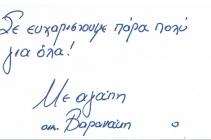 Σε ευχαριστουμε πάρα πολύ
για όλα!
Με αγάπη
οικ. Βαρανάκη